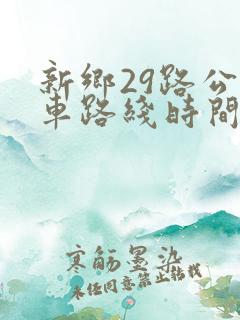 新鄉29路公
車路綫時間
寒筋墨染
未任同意禁止轉載